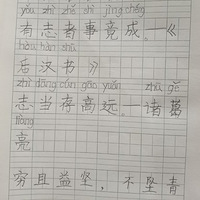 yǒu zhì zhě shì jìng chéng
有志者事竟成。—《
hòu hàn shū
后汉书》
zhì dāng cún gāo yuǎn zhū gě
志当存高远。—诸葛
liàng
亮
穷且益坚，不坠青